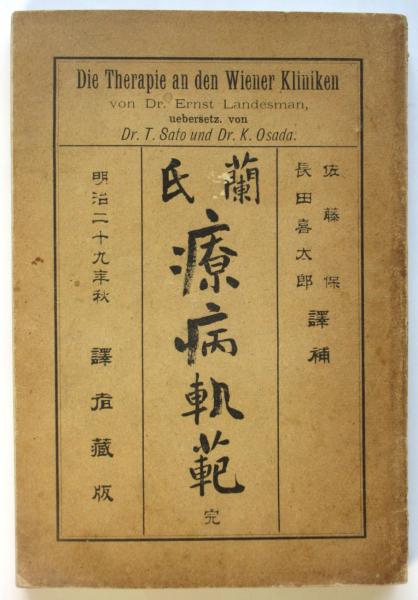 Die Therapie an den Wiener Kliniken
von Dr. Ernst Landesman,
uebersetz. von
Dr. T. Sato und Dr. K. Osada.
佐藤保
長田喜太郎
譯補
蘭氏
療病軌範
完
明治二十九年秋
譯者藏版